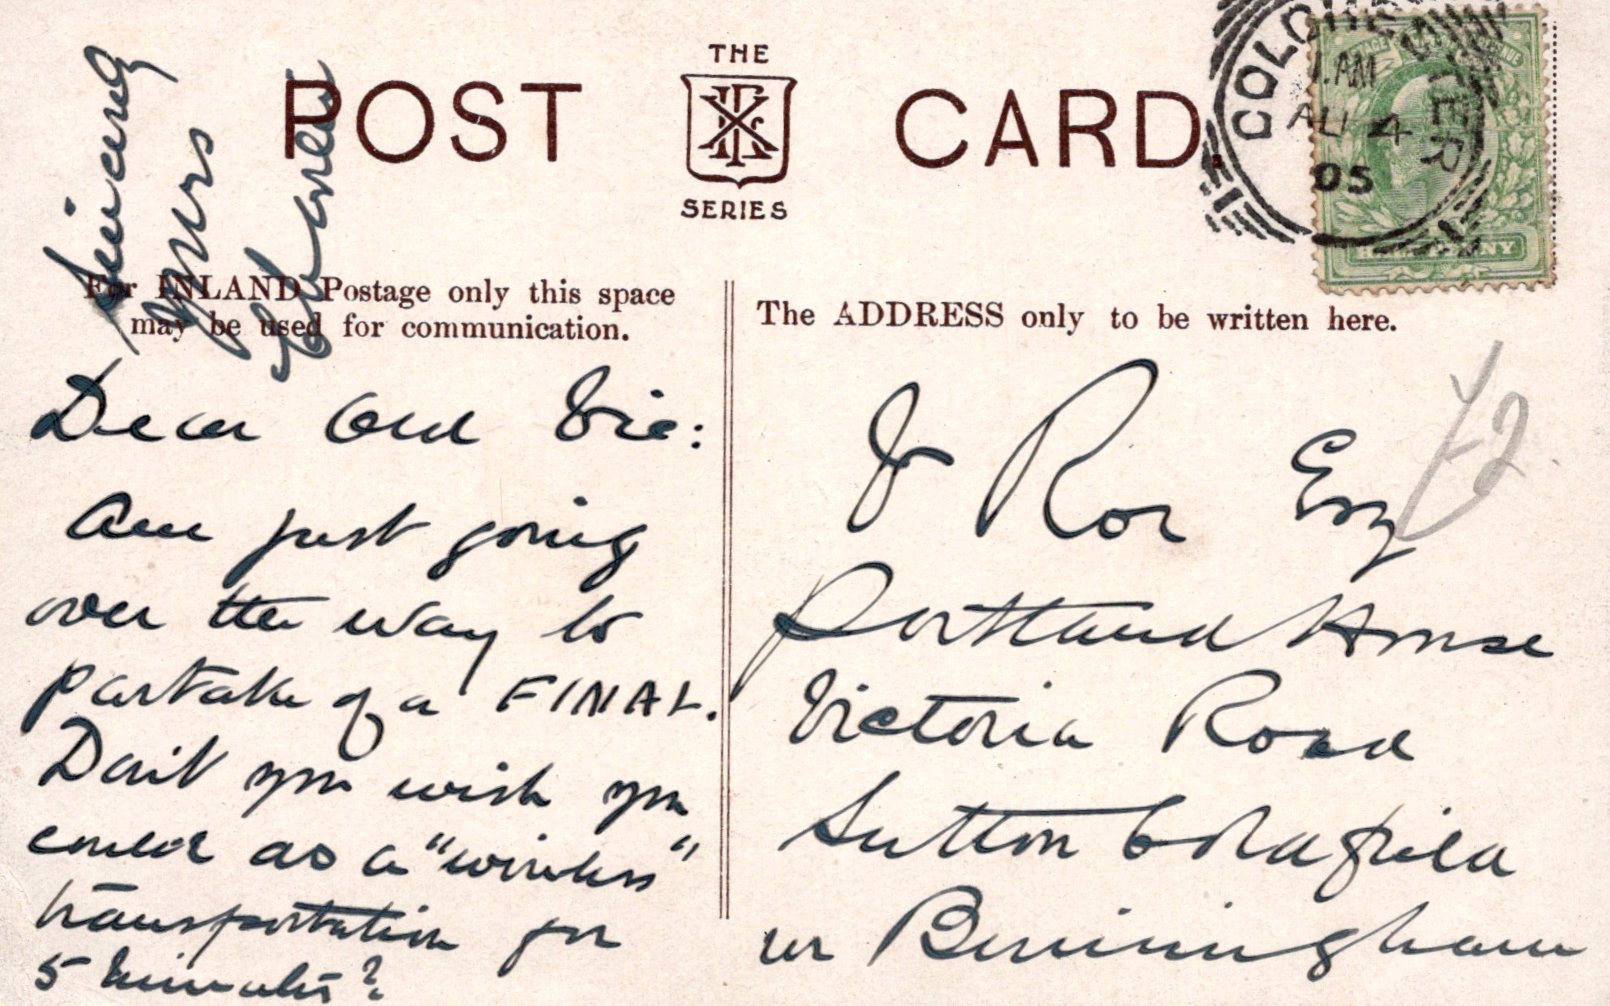 THE
POST CARD.
SERIES
COLCHESTER
AM
AU 4
05
HALFPENNY
For INLAND Postage only this space
may be used for communication.
The ADDRESS only to be written here.
Dear Old Vic:
Am just going
over the way to
partake of a FINAL.
Don't you wish you
could do a "wireless"
transportation for
5 minutes?
Sincerely
yours
V Roe Esq
Portland House
Victoria Road
Sutton Coldfield
nr Birmingham
£2